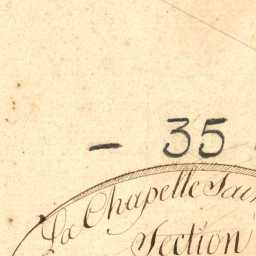 - 35
La Chapelle Sai
Section